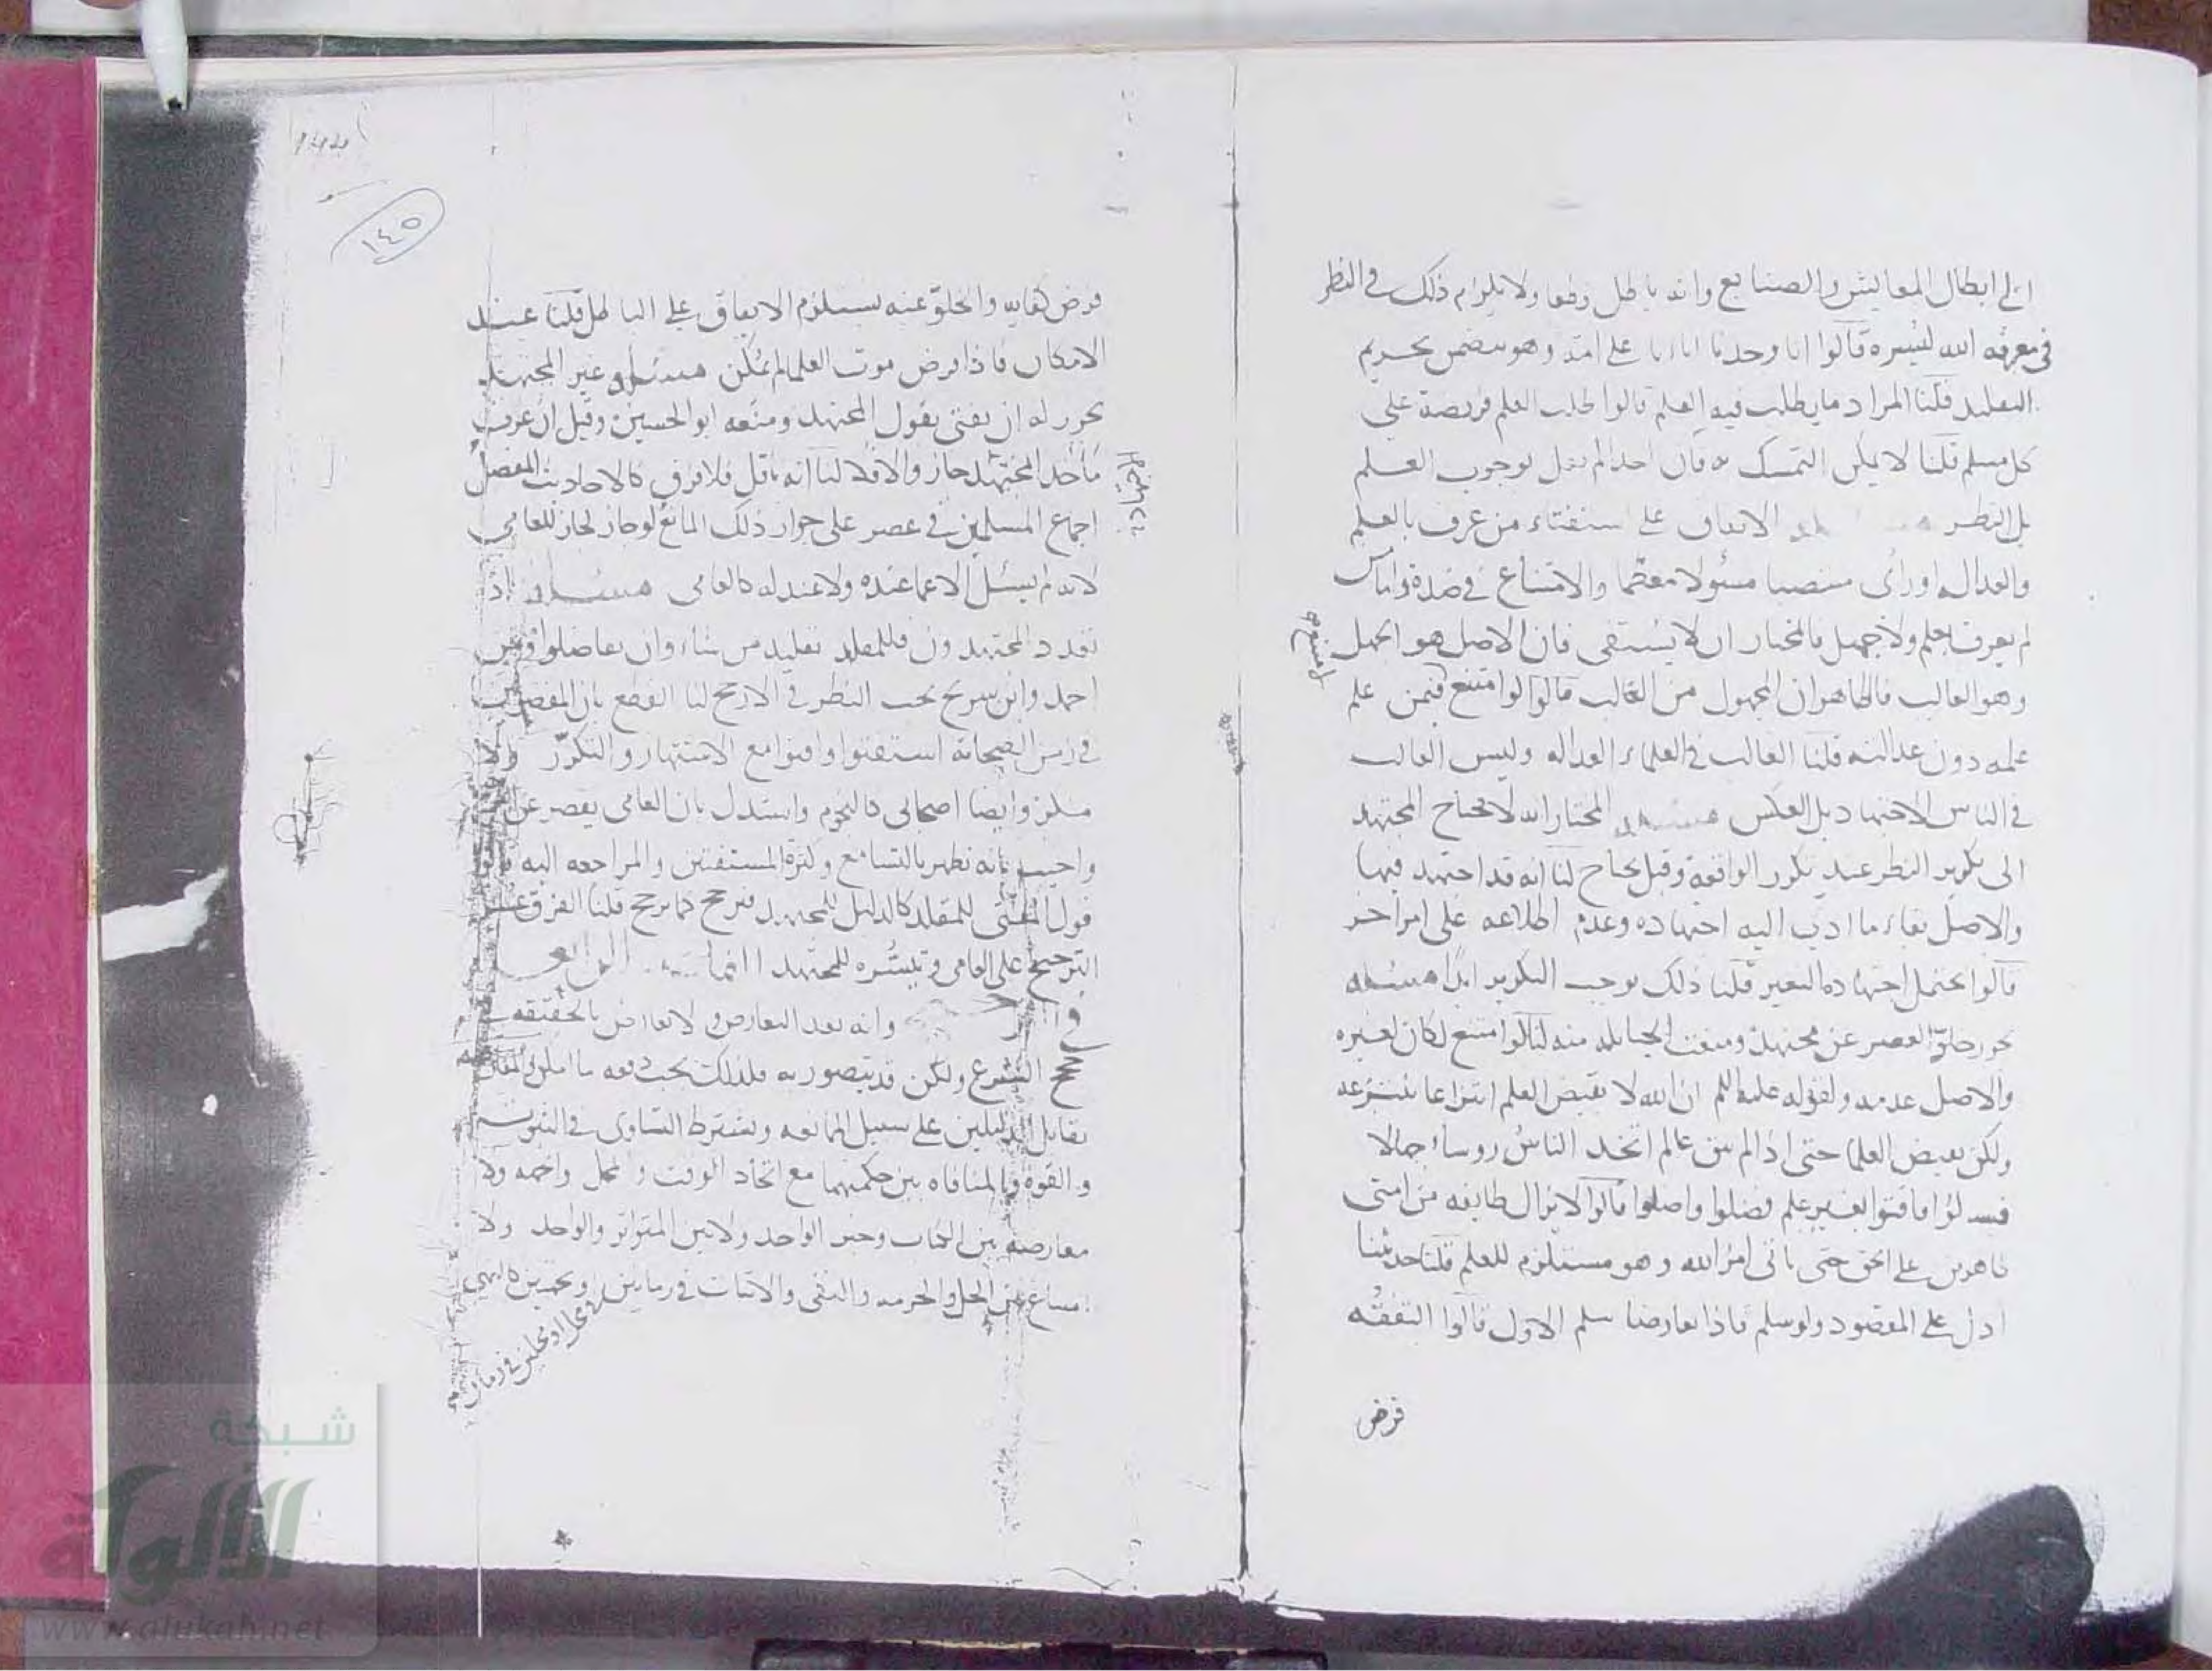 الى ابطال المعايش والصنايع وانه باطل قطعا ولا يلزم ذلك في النظر
في معرفة الله ليسره قالوا انا وجدنا اباءنا على امة وهو يتضمن تحريم
التقليد قلنا المراد ما يطلب فيه العلم قالوا طلب العلم فريضة على
كل مسلم قلنا لا يمكن التمسك به فان احدا لم يقل بوجوب العلم
بل النظر الاتفاق على استفتاء من عرف بالعلم
والعدالة او رأى منتصبا مسئولا معظما والامتناع في ضده واما من
لم يعرف بعلم ولا جهل فالمختار ان لا يستفتى فان الاصل هو الجهل
وهو الغالب فالظاهر ان المجهول من الغالب قالوا لو امتنع فيمن علم
علمه دون عدالته قلنا الغالب في العلماء العدالة وليس الغالب
في الناس الاجتهاد بل العكس مسئلة المختار انه لا يحتاج المجتهد
الى تكرير النظر عند تكرر الواقعة وقيل يحتاج لنا انه قد اجتهد فيها
والاصل بقاء ما ادى اليه اجتهاده وعدم اطلاعه على امر اخر
قالوا يحتمل اجتهاده التغير قلنا ذلك يوجب التكرير ابدا مسئلة
يجوز خلو العصر عن مجتهد ومنعت الحنابلة منه لنا لو امتنع لكان لغيره
والاصل عدمه ولقوله عليه السلم ان الله لا يقبض العلم انتزاعا ينتزعه
ولكن بقبض العلما حتى اذا لم يبق عالم اتخذ الناس روسا جهالا
فسئلوا فافتوا بغير علم فضلوا واضلوا قالوا لا يزال طايفة من امتى
ظاهرين على الحق حتى ياتى امر الله وهو مستلزم للعلم قلنا حديثنا
ادل على المقصود ولو سلم فاذا تعارضا سلم الاول قالوا التفقه
فرض
١٤٥
فرض كفاية والخلو عنه يستلزم الاتفاق على الباطل قلنا عند
الامكان فاذا فرض موت العلما لم يمكن مسئلة غير المجتهد
يجوز له ان يفتى بقول المجتهد ومنعه ابو الحسين وقيل ان عرف
مأخذ المجتهد جاز والا فلا لنا انه ناقل فلا فرق كالاحاديث المفصل
اجماع المسلمين في عصر على جواز ذلك المانع لو جاز لجاز للعامى
لانه لم يسئل الا عما عنده ولا عند له كالعامى مسئلة اذا
تعدد المجتهدون فللمقلد تقليد من شاء وان تفاضلوا وعن
احمد وابن سريج يجب النظر في الارجح لنا القطع بان المفضولين
في زمن الصحابة استفتوا وافتوا مع الاشتهار والتكرر ولا
منكر وايضا اصحابى كالنجوم واستدل بان العامى يقصر عن
واجيب بانه يظهر بالتسامع وكثرة المستفتين والمراجعة اليه
قول المفتى للمقلد كالدليل للمجتهد فيرجح كما يرجح قلنا الفرق
الترجيح على العامى وتيسره للمجتهد
وانه بعد التعارض ولا تعارض بالحقيقة
الشرع ولكن قد يتصور به فلذلك يجب دفعه ما امكن
تقابل الدليلين على سبيل الممانعة ويشترط التساوى في الثبوت
والقوة والمنافاة بين حكميهما مع اتحاد الوقت والمحل والجهة ولا
معارضة بين الكتاب وخبر الواحد ولا بين المتواتر والواحد ولا
امتناع بين الحل والحرمة والنفى والاثبات في زمانين
محل او محلين في زمان
شبكة
الألوكة
www.alukah.net